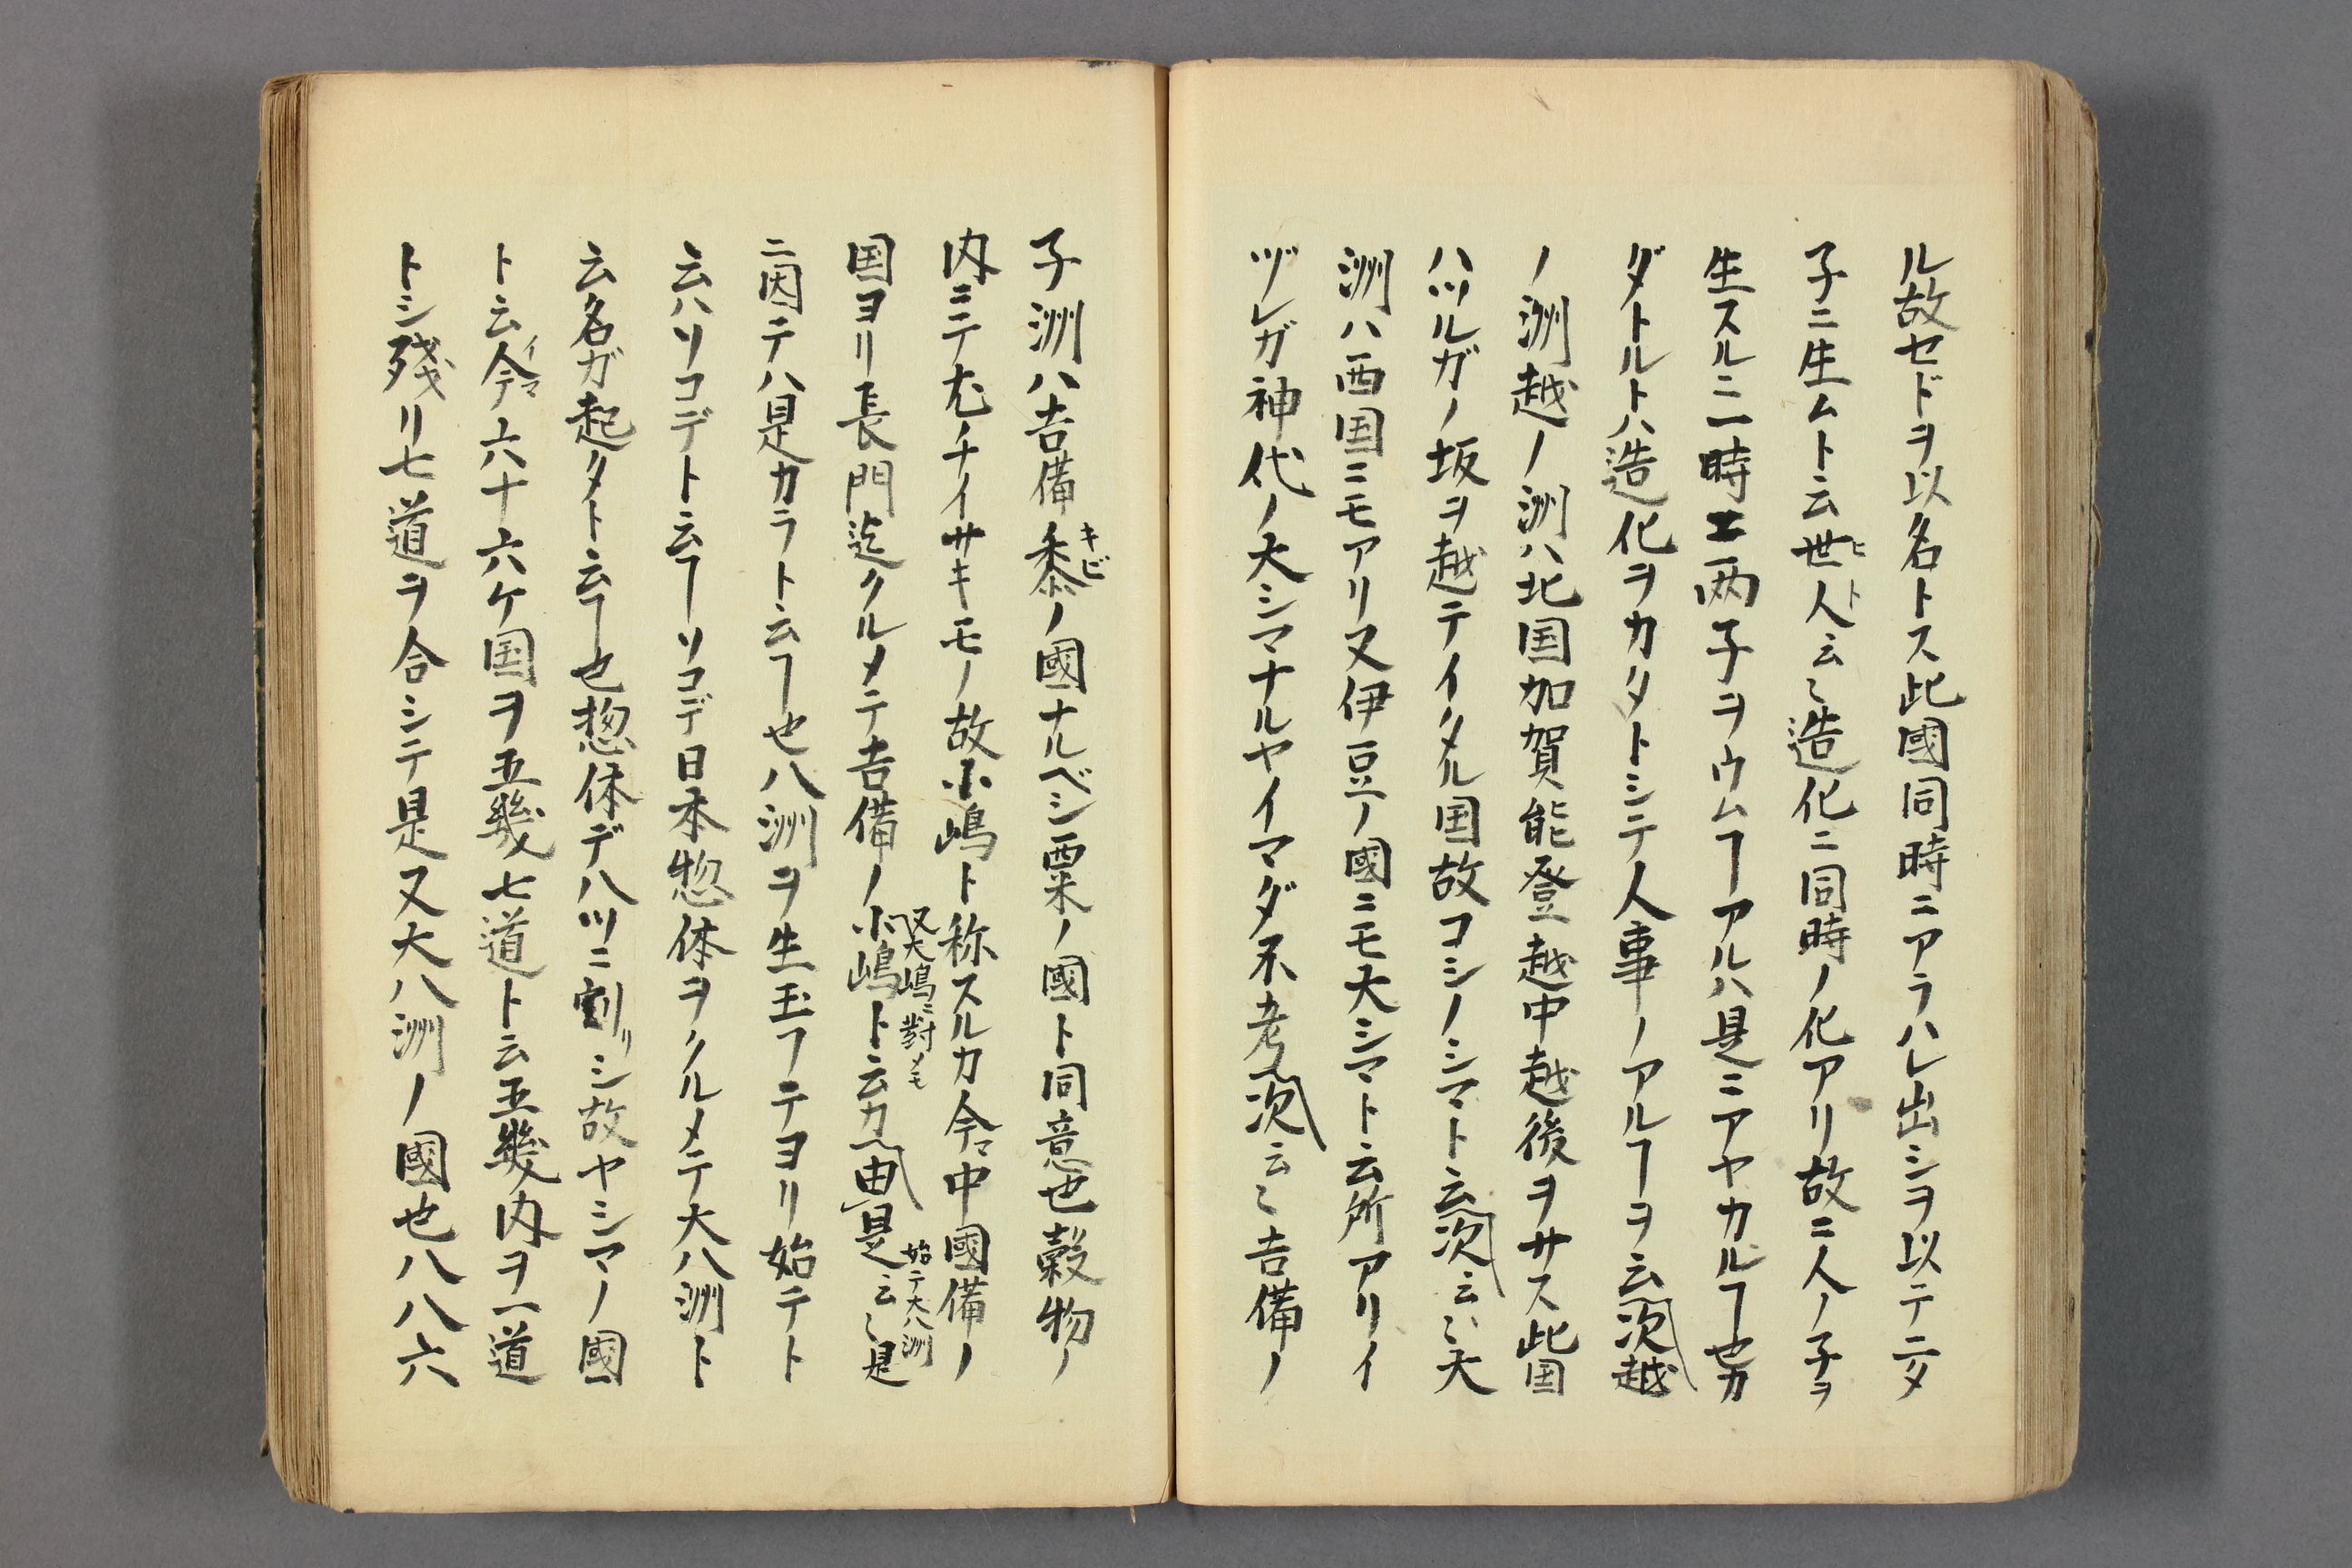 ル故セドヲ以名トス此國同時ニアラハレ出シヲ以テ二タ
子ニ生ムト云世人云〻造化ニ同時ノ化アリ故ニ人ノ子ヲ
ヒト
生スルニ一時ニ両子ヲウムヿアルハ是ニアヤカルヿ也カ
ダトルトハ造化ヲカタトシテ人事ノアルヿヲ云次越
ノ洲越ノ洲ハ北国加賀能登越中越後ヲサス此国
ハツルガノ坂ヲ越テイタル国故コシノシマト云次云〻大
洲ハ西国ニモアリ又伊豆ノ國ニモ大シマト云所アリイ
ヅレガ神代ノ大シマナルヤイマダ不考次云〻吉備ノ
子洲ハ吉備黍ノ國ナルベシ粟ノ國ト同意也穀物ノ
キビ
内ニテ尤チイサキモノ故小嶋ト称スルカ今マ中國備ノ
又大嶋ニ對メモ
始テ大八洲
国ヨリ長門迄クルメテ吉備ノ小嶋ト云カ由是云〻是
ニ因テハ是カラト云ヿ也八洲ヲ生玉フテヨリ始テト
云ハソコデト云ヿソコデ日本惣体ヲクルメテ大八洲ト
云名ガ起タト云ヿ也惣体デ八ツニ割リシ故ヤシマノ國
ト云今六十六ケ国ヲ五畿七道ト云五畿内ヲ一道
イマ
トシ殘リ七道ヲ合シテ是又大八洲ノ國也八八六